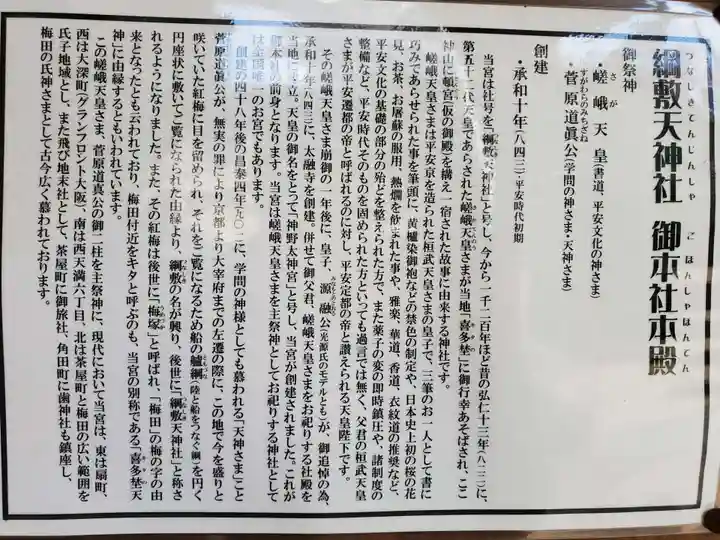 綱敷天神社 御本社本殿
つなしきてんじんしゃ ごほんしゃほんでん
御祭神
・嵯峨天皇(書道、平安文化の神さま)
さが
・菅原道眞公(学問の神さま・天神さま)
すがわらのみちざね
創建
・承和十年(八四三)・平安時代初期
当宮は社号を「綱敷天神社」と号し、今から一千二百年ほど昔の弘仁十三年(八二二)に、
第五十二代天皇であらされた嵯峨天皇さまが当地「喜多埜」に御行幸あそばされ、ここ
神山に頓宮(仮の御殿)を構え一宿された故事に由来する神社です。
嵯峨天皇さまは平安京を造られた桓武天皇さまの皇子で、三筆のお一人として書に
巧みであらせられた事を筆頭に、黄櫨染御袍などの禁色の制定や、日本史上初の桜の花
見、お茶、お屠蘇の服用、熱燗を飲まれた事や、雅楽、華道、香道、衣紋道の推奨など、
平安文化の基礎の部分の殆どを整えられた方で、また薬子の変の即時鎮圧や、諸制度の
整備など、平安時代そのものを固められた方といっても過言では無く、父君の桓武天皇
さまが平安遷都の帝と呼ばれるのに対し、平安定都の帝と讃えられる天皇陛下です。
その嵯峨天皇さま崩御の一年後に、皇子、源融公(光源氏のモデルとも)が、御追悼の為、
承和十年(八四三)に、太融寺を創建。併せて御父君、嵯峨天皇さまをお祀りする社殿を
当地に建立。天皇の御名をとって「神野太神宮」と号し、当宮が創建されました。これが
御本社の前身となります。当宮は嵯峨天皇さまを主祭神としてお祀りする神社として
は全国唯一のお宮でもあります。
創建の四十八年後の昌泰四年(九〇一)に、学問の神様としても慕われる「天神さま」こと
菅原道眞公が、無実の罪により京都より大宰府までの左遷の際に、この地で今を盛りと
咲いていた紅梅に目を留められ、それをご覧になるため船の艫綱(陸と船をつなぐ綱)を円く
円座状に敷いてご覧になられた由縁より、綱敷の名が興り、後世に「綱敷天神社」と称さ
れるようになりました。また、その紅梅は後世に「梅塚」と呼ばれ、「梅田」の梅の字の由
来となったとも云われており、梅田付近をキタと呼ぶのも、当宮の別称である「喜多埜天
神」に由縁するともいわれています。
この嵯峨天皇さま、菅原道真公の御二柱を主祭神に、現代において当宮は、東は扇町、
西は大深町(グランフロント大阪)、南は西天満六丁目、北は茶屋町と梅田の広い範囲を
氏子地域とし、また飛び地末社として、茶屋町に御旅社、角田町に歯神社も鎮座し、
梅田の氏神さまとして古今広く慕われております。